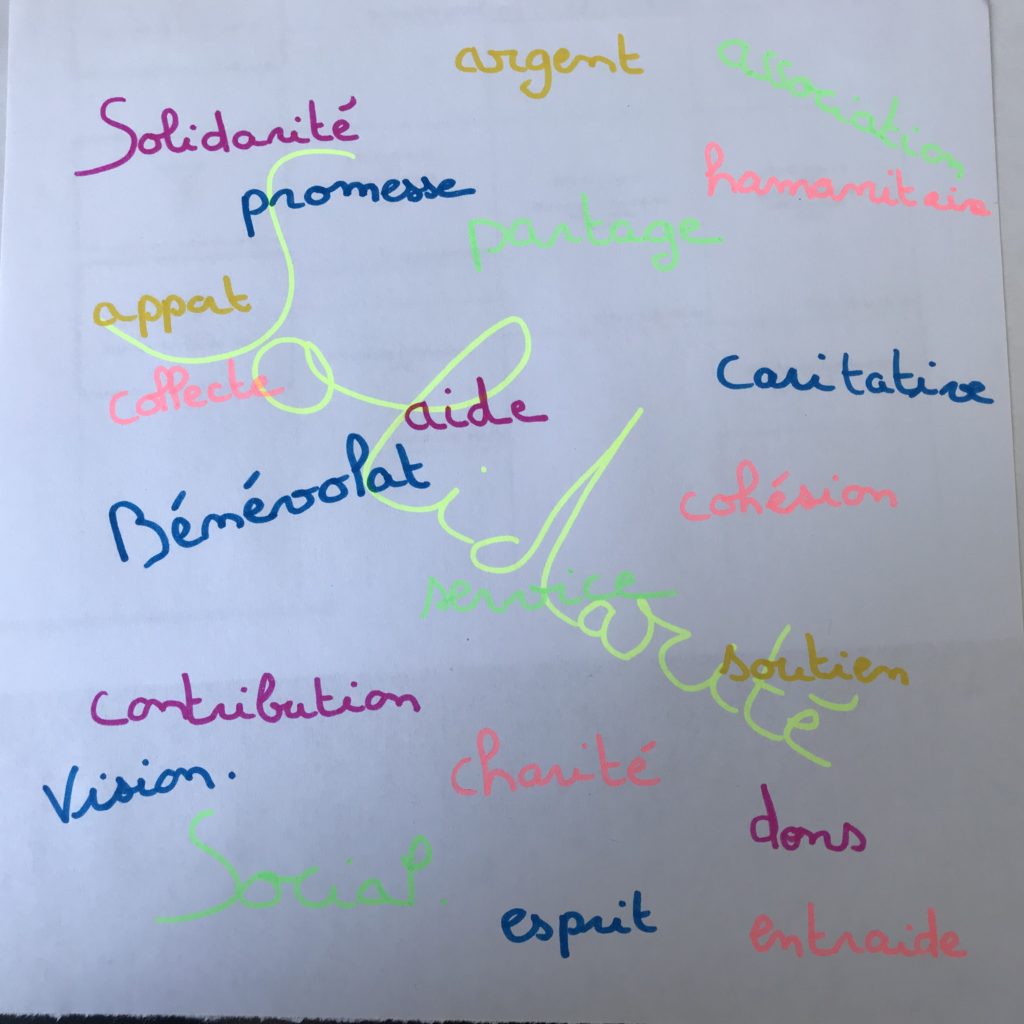 argent
association
Solidarité
hamanitaire
promesse
partage
appat
Solidarité
collecte
caritative
aide
Bénévolat
cohésion
service
soutien
contribution
charité
Vision.
dons
Social.
esprit
entraide